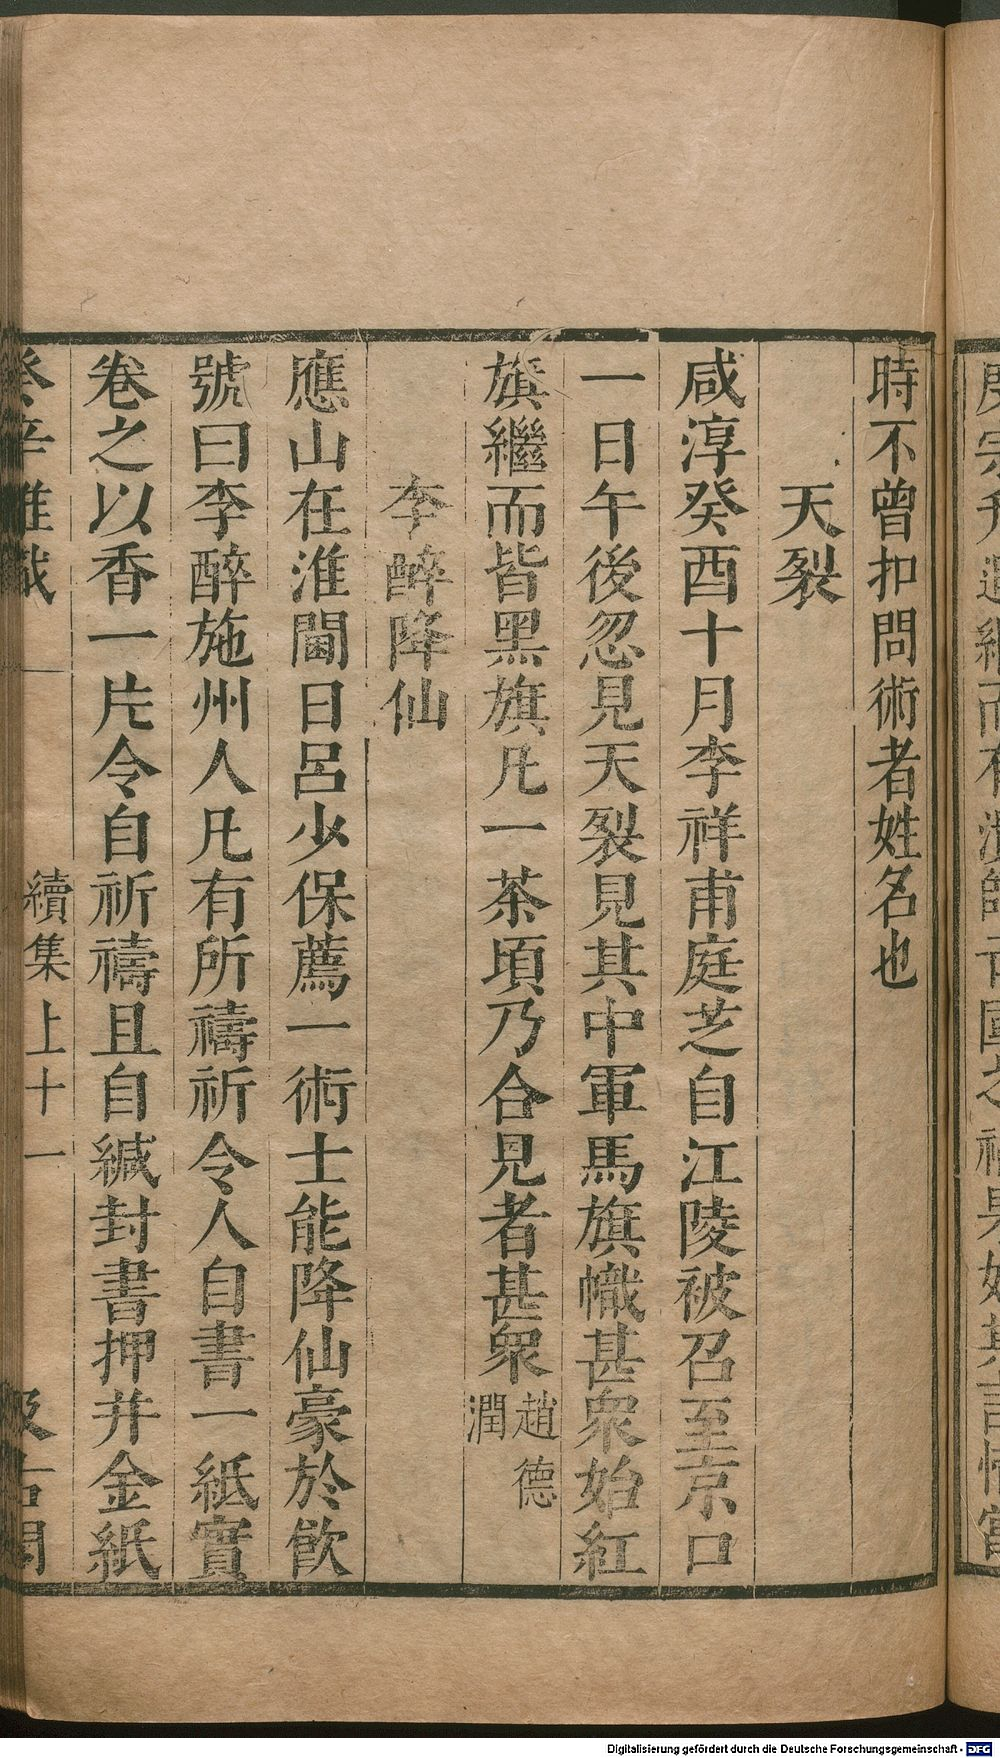 時不曾扣問術者姓名也
天裂
咸淳癸酉十月李祥甫庭芝自江陵被召至京口
一日午後忽見天裂見其中軍馬旗幟甚衆始紅
旗繼而皆黑旗凡一茶頃乃合見者甚衆趙德潤
李醉降仙
應山在淮閫日呂少保薦一術士能降仙豪於飲
號曰李醉施州人凡有所禱祈令人自書一紙實
卷之以香一片令自祈禱且自緘封書押并金紙
癸辛雜識
續集上十一
汲古閣
Digitalisierung gefördert durch die Deutsche Forschungsgemeinschaft - DFG